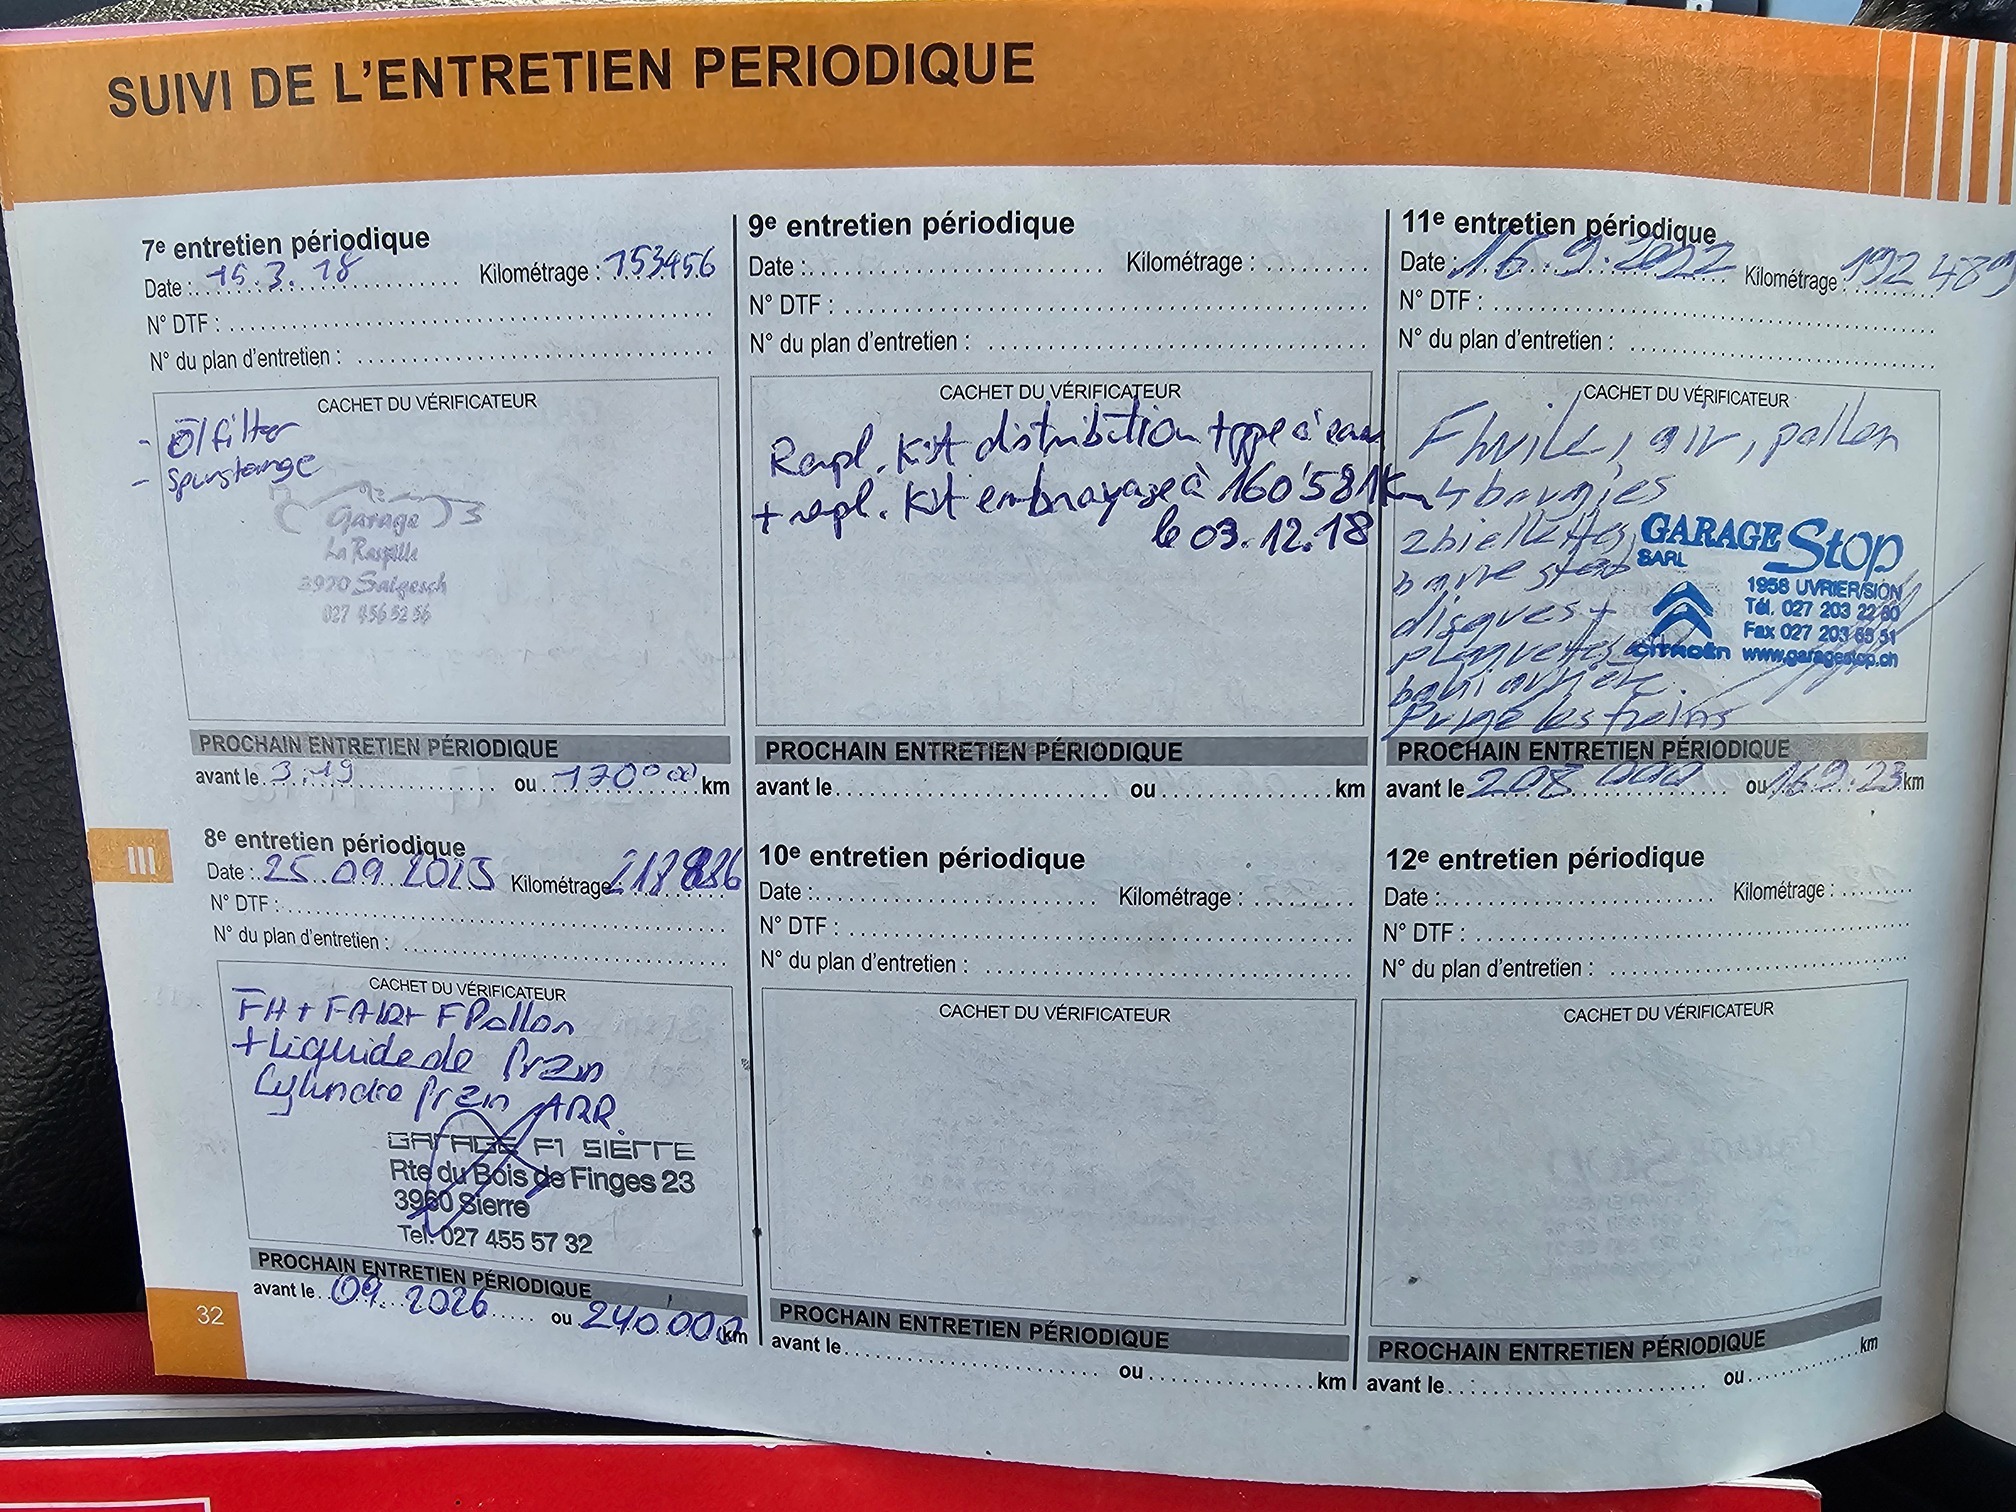 SUIVI DE L'ENTRETIEN PERIODIQUE
7e entretien périodique
Date : 15.3.18 Kilométrage : 153456
N° DTF :
N° du plan d'entretien :
CACHET DU VÉRIFICATEUR
- Ölfilter
- Spurstange
Garage
La Raspille
3970 Salgesch
027 456 52 56
PROCHAIN ENTRETIEN PÉRIODIQUE
avant le 3.19 ou 170000 km
8e entretien périodique
Date : 25.09.2025 Kilométrage : 218836
N° DTF :
N° du plan d'entretien :
CACHET DU VÉRIFICATEUR
FH + FAIR + FPollen
+ Liquide de frein
Cylindre frein ARR.
GARAGE F1 SIERRE
Rte du Bois de Finges 23
3960 Sierre
Tel. 027 455 57 32
PROCHAIN ENTRETIEN PÉRIODIQUE
avant le 09.2026 ou 240.000 km
III
32
9e entretien périodique
Date : Kilométrage :
N° DTF :
N° du plan d'entretien :
CACHET DU VÉRIFICATEUR
Rempl. Kit distribution + ppe à eau
+ rempl. Kit embrayage à 160'581 Km
le 03.12.18
PROCHAIN ENTRETIEN PÉRIODIQUE
avant le ou km
10e entretien périodique
Date : Kilométrage :
N° DTF :
N° du plan d'entretien :
CACHET DU VÉRIFICATEUR
PROCHAIN ENTRETIEN PÉRIODIQUE
avant le ou km
11e entretien périodique
Date : 16.9.2022 Kilométrage : 192489
N° DTF :
N° du plan d'entretien :
CACHET DU VÉRIFICATEUR
F huile, air, pollen
4 bougies
2 biellettes
barre stab
disques +
plaquettes
arrière.
Purge les freins
GARAGE Stop
SARL
1958 UVRIER/SION
Tél. 027 203 22 80
Fax 027 203 65 51
CITROËN www.garagestop.ch
PROCHAIN ENTRETIEN PÉRIODIQUE
avant le 208 000 ou 16.9.23 km
12e entretien périodique
Date : Kilométrage :
N° DTF :
N° du plan d'entretien :
CACHET DU VÉRIFICATEUR
PROCHAIN ENTRETIEN PÉRIODIQUE
avant le ou km